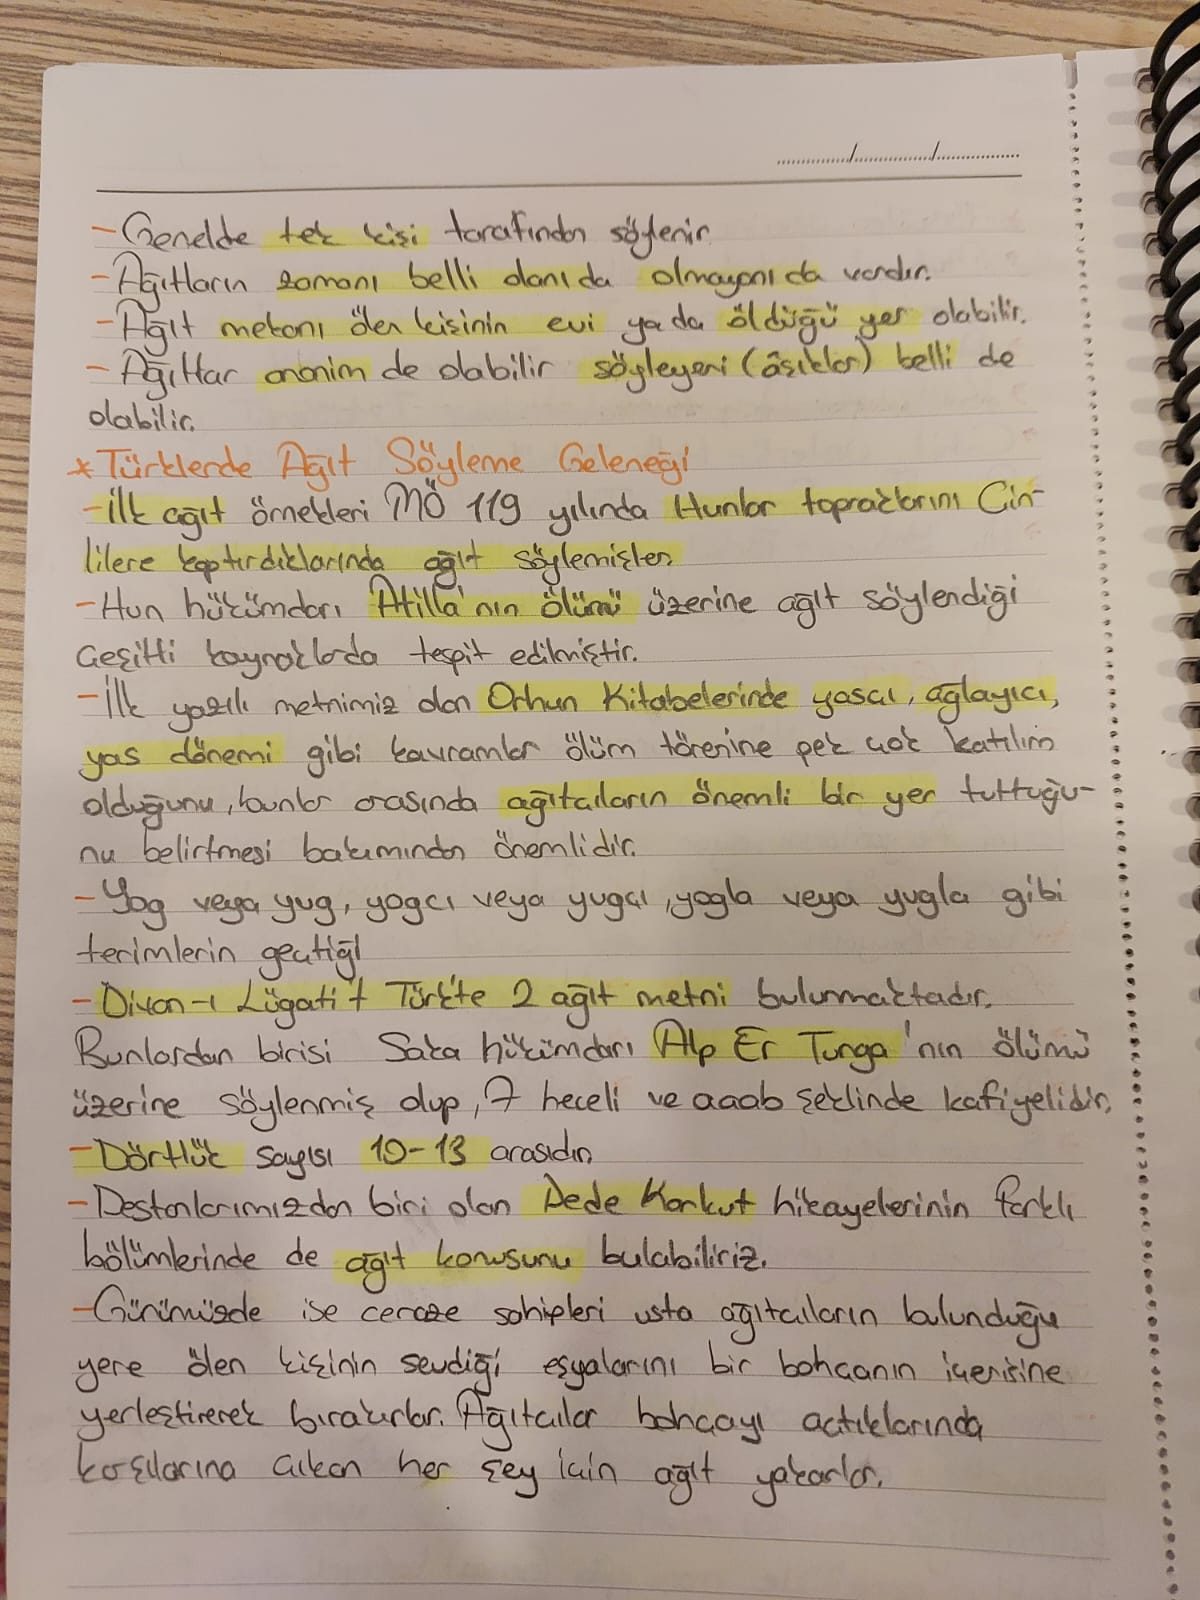 - Genelde tek kişi tarafından söylenir.
- Ağıtların zamanı belli olanı da olmayanı da vardır.
- Ağıt mekanı ölen kişinin evi ya da öldüğü yer olabilir.
- Ağıtlar anonim de olabilir söyleyeni (âşıklar) belli de
olabilir.
* Türklerde Ağıt Söyleme Geleneği
- İlk ağıt örnekleri MÖ 119 yılında Hunlar topraklarını Çin-
lilere kaptırdıklarında ağıt söylemişler.
- Hun hükümdarı Atilla'nın ölümü üzerine ağıt söylendiği
çeşitli kaynaklarda tespit edilmiştir.
- İlk yazılı metnimiz olan Orhun Kitabelerinde yasçı, ağlayıcı,
yas dönemi gibi kavramlar ölüm törenine pek çok katılım
olduğunu, bunlar arasında ağıtçıların önemli bir yer tuttuğu-
nu belirtmesi bakımından önemlidir.
- Yog veya yug, yogcı veya yugçı, yogla veya yugla gibi
terimlerin geçtiği
- Divan-ı Lügati't Türk'te 2 ağıt metni bulunmaktadır.
Bunlardan birisi Saka hükümdarı Alp Er Tunga'nın ölümü
üzerine söylenmiş olup, 7 heceli ve aaab şeklinde kafiyelidir.
- Dörtlük sayısı 10-13 arasıdır.
- Destanlarımızdan biri olan Dede Korkut hikayelerinin farklı
bölümlerinde de ağıt konusunu bulabiliriz.
- Günümüzde ise cenaze sahipleri usta ağıtçıların bulunduğu
yere ölen kişinin sevdiği eşyalarını bir bohçanın içerisine
yerleştirerek bırakırlar. Ağıtçılar bohçayı açtıklarında
karşılarına çıkan her şey için ağıt yakarlar.